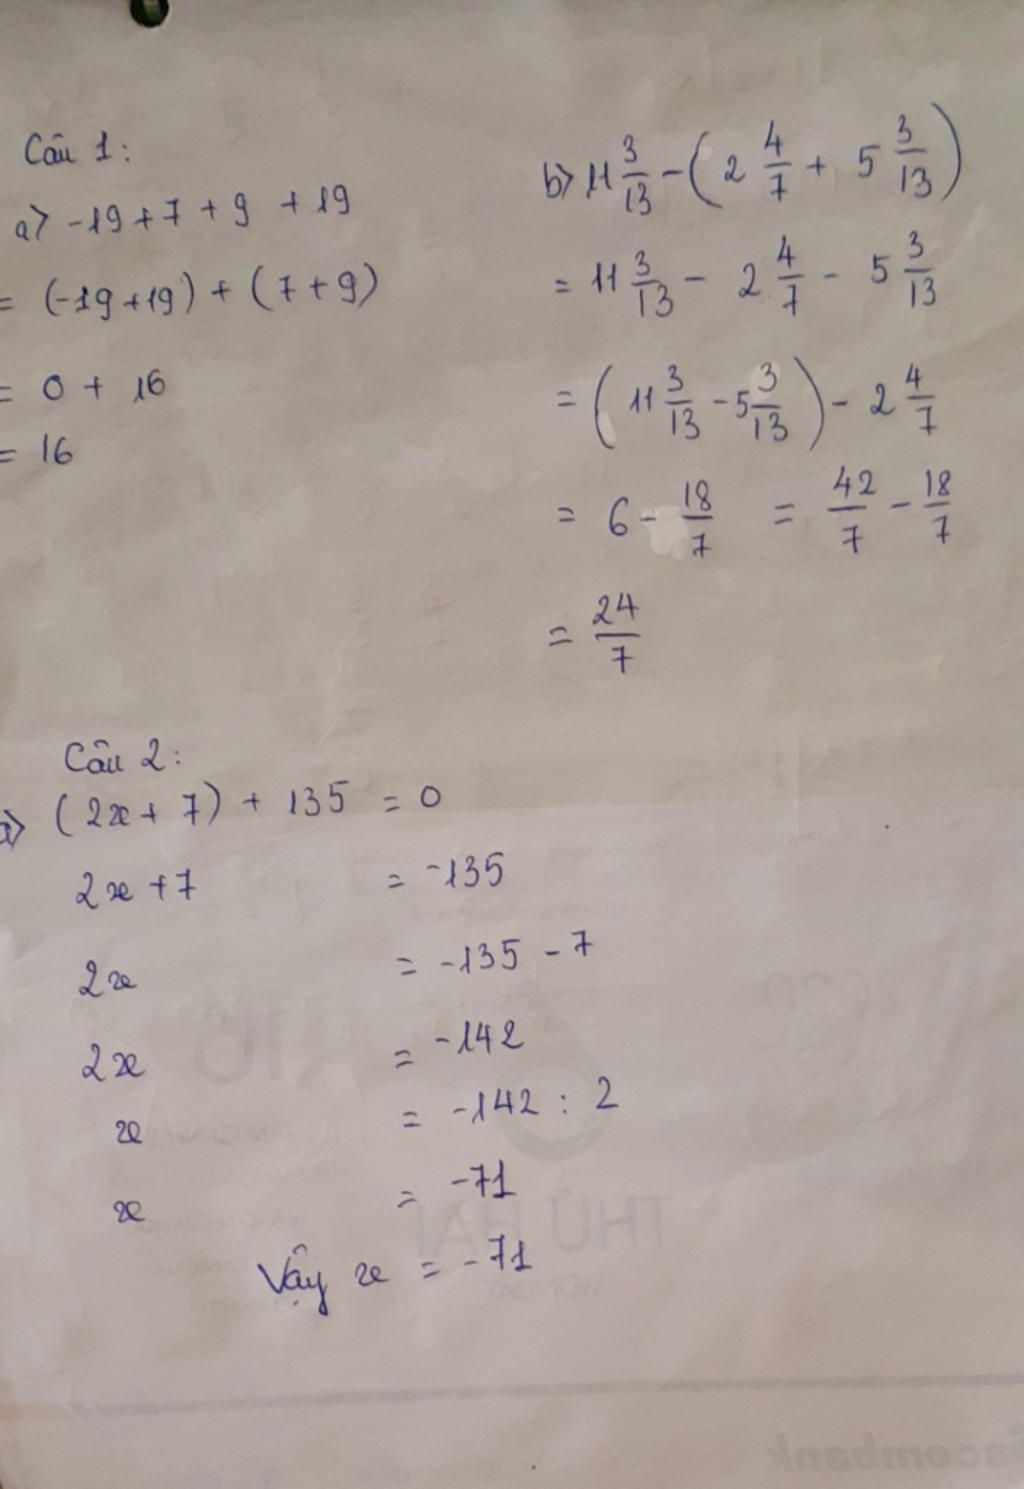 Câu 1:
a) -19 + 7 + 9 + 19
= (-19 + 19) + (7 + 9)
= 0 + 16
= 16
b) 11 3/13 - (2 4/7 + 5 3/13)
= 11 3/13 - 2 4/7 - 5 3/13
= (11 3/13 - 5 3/13) - 2 4/7
= 6 - 18/7 = 42/7 - 18/7
= 24/7
Câu 2:
a) (2x + 7) + 135 = 0
2x + 7 = -135
2x = -135 - 7
2x = -142
x = -142 : 2
x = -71
Vậy x = -71
THỨ HAI
MONDAY
Sacombank